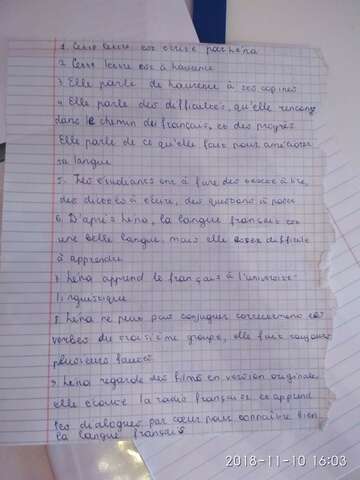 1. Cette lettre est écrite par Lena
2. Cette lettre est à Laurence
3. Elle parle de Laurence à ses copines
4. Elle parle des difficultés, qu'elle rencont
dans le chemin de français, et des progrès
Elle parle de ce qu'elle fais pour améliorer
sa langue
5. Les étudiants ont à faire des textes à lire,
des dictées à écrire, des questions à poser
6. D'après Lena, la langue français est
une belle langue, mais elle est difficile
à apprendre
7. Lena apprend le français à l'université
linguistique
8. Lena ne peux pas conjuguer correctement les
verbes du troisième groupe, elle fais toujours
plusieurs fautes
9. Lena regarde des films en version originale
elle écoute la radio française, et apprend
les dialogues par cœur pour connaître bien
la langue français
2018-11-10 16:03